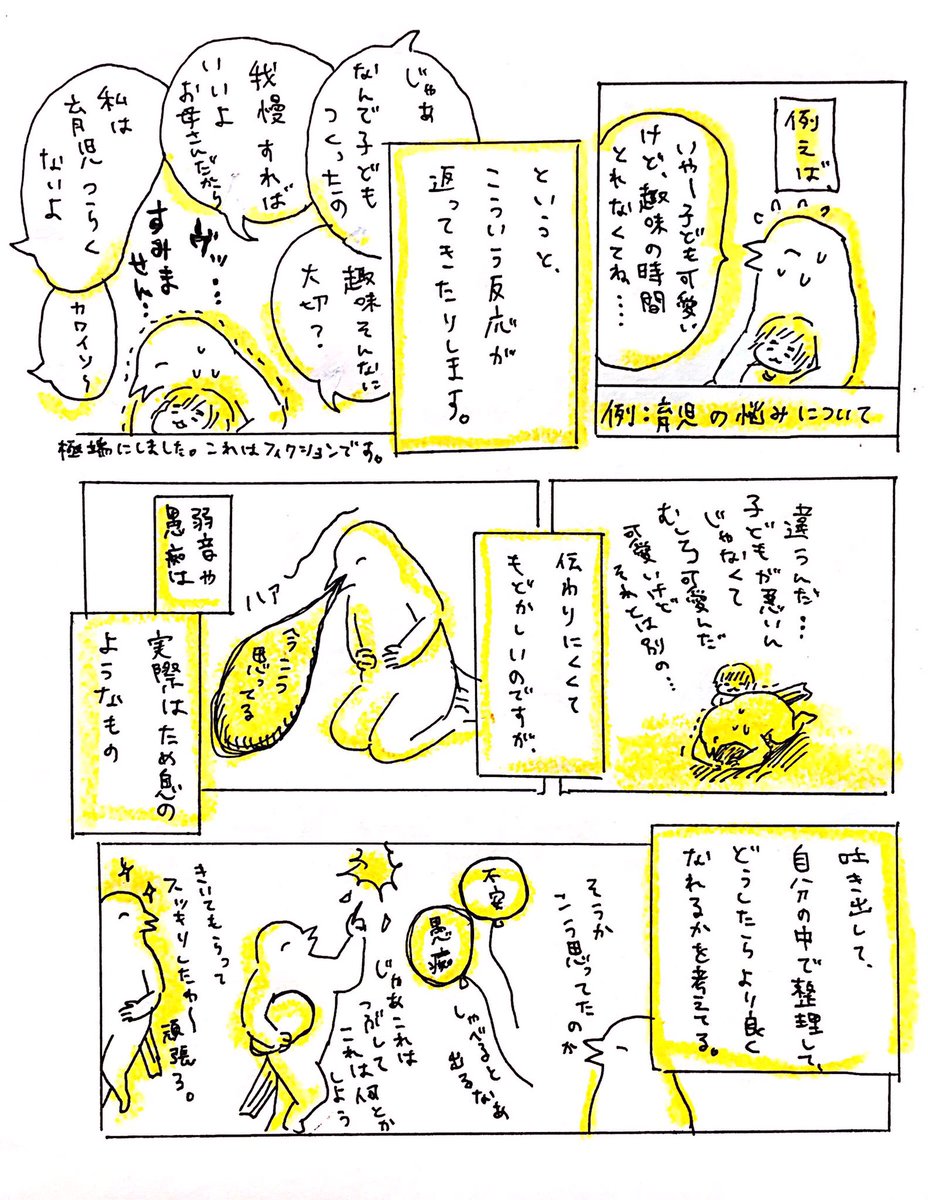 例えば
いやー子ども可愛い
けど、趣味の時間
とれなくてね…
例：育児の悩みについて
というと、
こういう反応が
返ってきたりします。
じゃあ
なんで子ども
つくったの
我慢すれば
いいよ
お母さんだから
私は
育児つらく
ないよ
趣味そんなに
大切？
カワイソ〜
ヴッ…
すみま
せん…
極端にしました。これはフィクションです。
違うんだ…
子どもが悪いん
じゃなくて
むしろ可愛んだ
可愛いけど
それとは別の…
伝わりにくくて
もどかしいのですが、
ハァ
今こう
思ってる
弱音や
愚痴は
実際はため息の
ようなもの
吐き出して、
自分の中で整理して、
どうしたらより良く
なれるかを考えてる。
そうか
こう思ってたのか
不安
愚痴
しゃべると
出るなぁ
じゃあこれは
つぶして
これは何とか
しよう
きいてもらって
スッキリしたわ〜
頑張ろ。